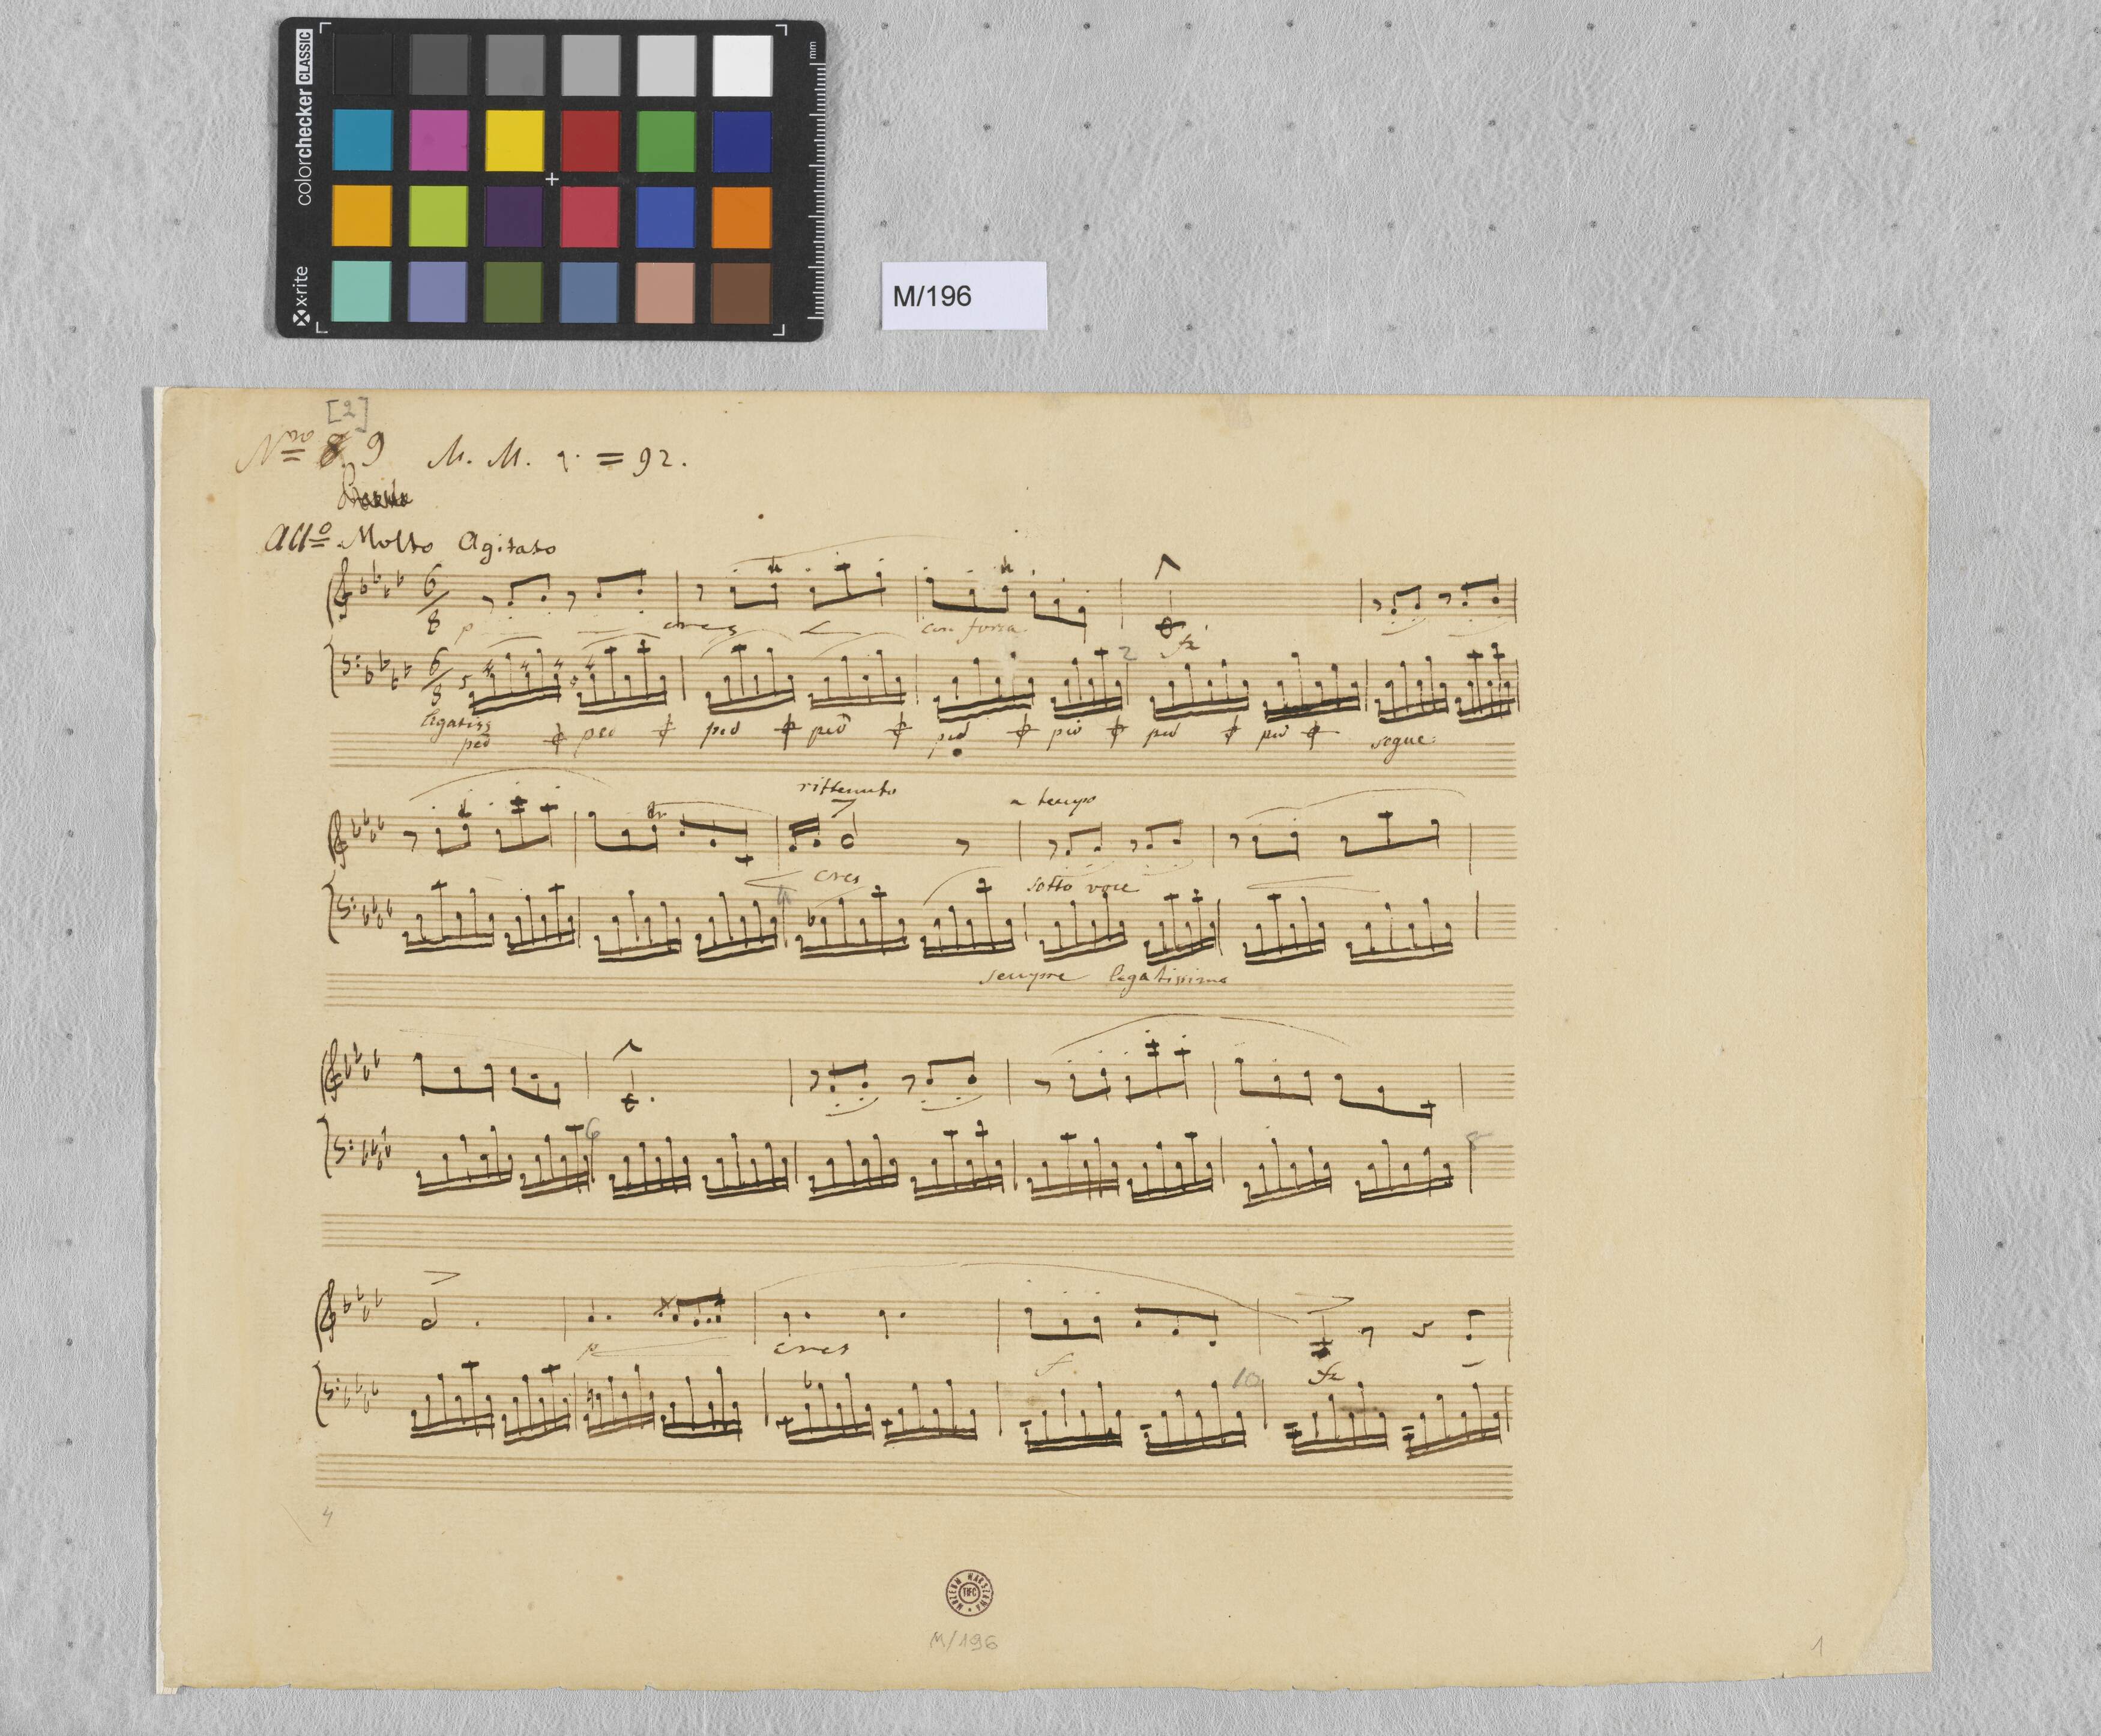 colorchecker CLASSIC
x-rite
mm
M/196
[2]
Nro 8 9 M. M. = 92.
Allo Molto Agitato
6 8
p cres con forza fz
6 8
2
legatiss
ped ped ped ped ped ped ped ped segue
rittenuto a tempo
cres sotto voce
sempre legatissimo
6
8
p cres f fz
10
4
MUZEUM WARSZAWA TIFC
M/196
1